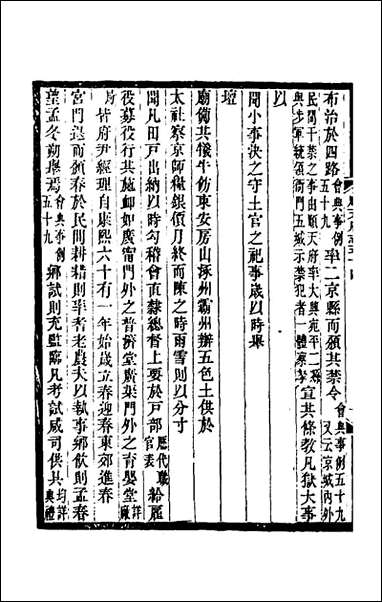 布治於四路會典事例五十九率二京縣而頒其禁令會典事例五十九又云京城內外
民間干禁之事由順天府率大興宛平二縣與步軍統領衙門五城示禁犯者一體察拏宣其條教凡獄大事
以
聞小事決之守土官之祀事歲以時舉
壇
廟備其犧牛飭東安房山涿州霸州辦五色土供於
太社察京師糧銀價月終而陳之時雨雪則以分寸
聞凡田戶出納以時勾稽會直隸總督上要於戶部歷代職官表給雇
役募役行其施卹如廣甯門外之普濟堂廣渠門外之育嬰堂詳廠
局皆府尹經理自康熙六十有一年始歲立春迎春東郊進春
宮門退而鞭春於民間耕耤則率耆老農夫以執事鄉飲則孟春
望孟冬朔舉焉會典事例五十九鄉試則充監臨凡考試咸司供具均詳典禮